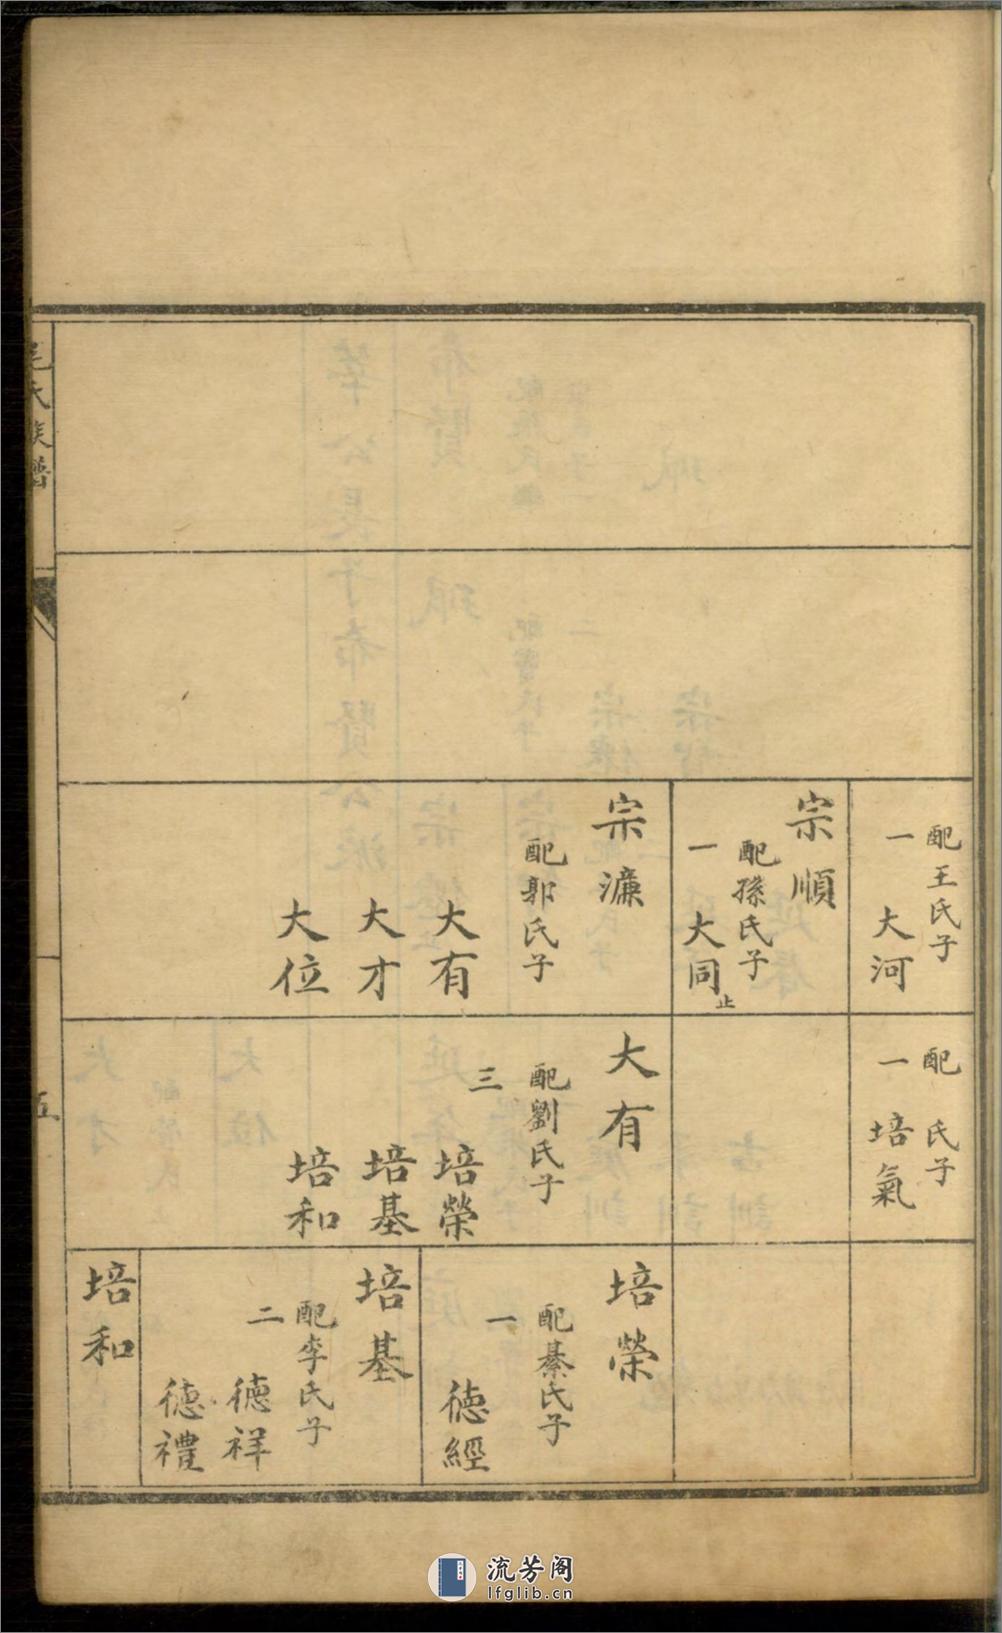 配王氏子
一
大河
宗順
配孫氏子
一
大同
止
宗濂
配郭氏子
大有
大才
大位
配 氏子
一
培氣
大有
配劉氏子
三
培榮
培基
培和
培榮
配綦氏子
一
德經
培基
配李氏子
二
德祥
德禮
培和
氏族譜
五
流芳阁
lfglib.cn